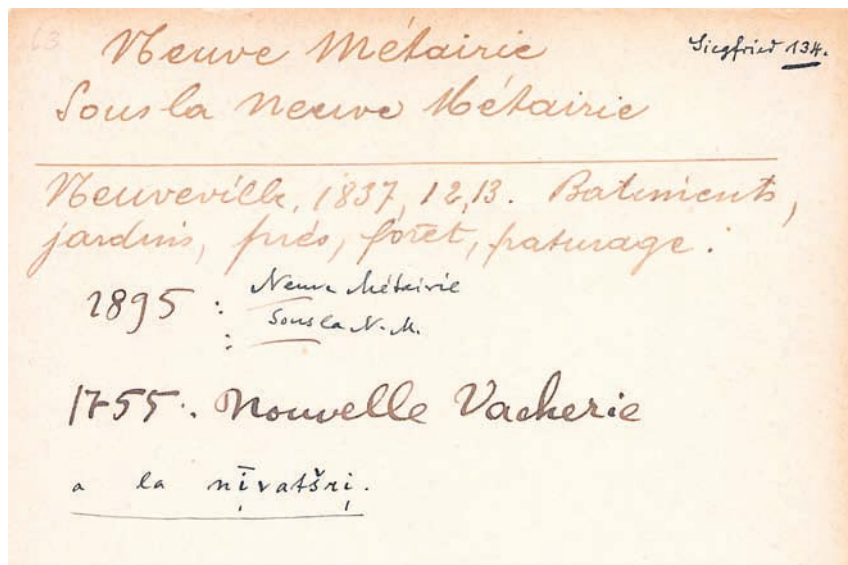 63 Neuve Métairie Siegfried 134.
Sous la Neuve Métairie
Neuveville, 1837, 12,13. Batiments,
jardins, prés, forêt, paturage.
1895 : Neuve Métairie
: Sous la N. M.
1755. Nouvelle Vacherie
a la nīvatšri.